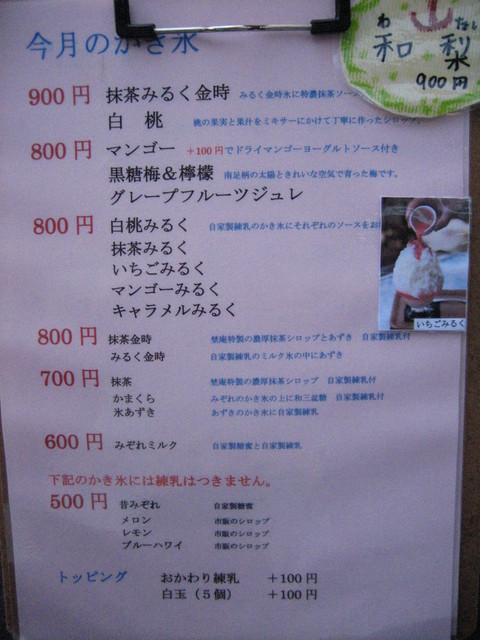 今月のかき氷
わ なし
和 梨
氷
900円
900円 抹茶みるく金時 みるく金時氷に特濃抹茶ソース
白 桃 桃の果実と果汁をミキサーにかけて丁寧に作ったシロップ。
800円 マンゴー +100円でドライマンゴーヨーグルトソース付き
黒糖梅&檸檬 南足柄の太陽ときれいな空気で育った梅です。
グレープフルーツジュレ
800円 白桃みるく 自家製練乳のかき氷にそれぞれのソースをお
抹茶みるく
いちごみるく
マンゴーみるく
キャラメルみるく
いちごみるく
800円 抹茶金時 埜庵特製の濃厚抹茶シロップとあずき 自家製練乳付
みるく金時 自家製練乳のミルク氷の中にあずき
700円 抹茶 埜庵特製の濃厚抹茶シロップ 自家製練乳付
かまくら みぞれのかき氷の上に和三盆糖 自家製練乳付
氷あずき あずきのかき氷に自家製練乳
600円 みぞれミルク 自家製糖蜜と自家製練乳
下記のかき氷には練乳はつきません。
500円 昔みぞれ 自家製糖蜜
メロン 市販のシロップ
レモン 市販のシロップ
ブルーハワイ 市販のシロップ
トッピング おかわり練乳 +100円
白玉(5個) +100円